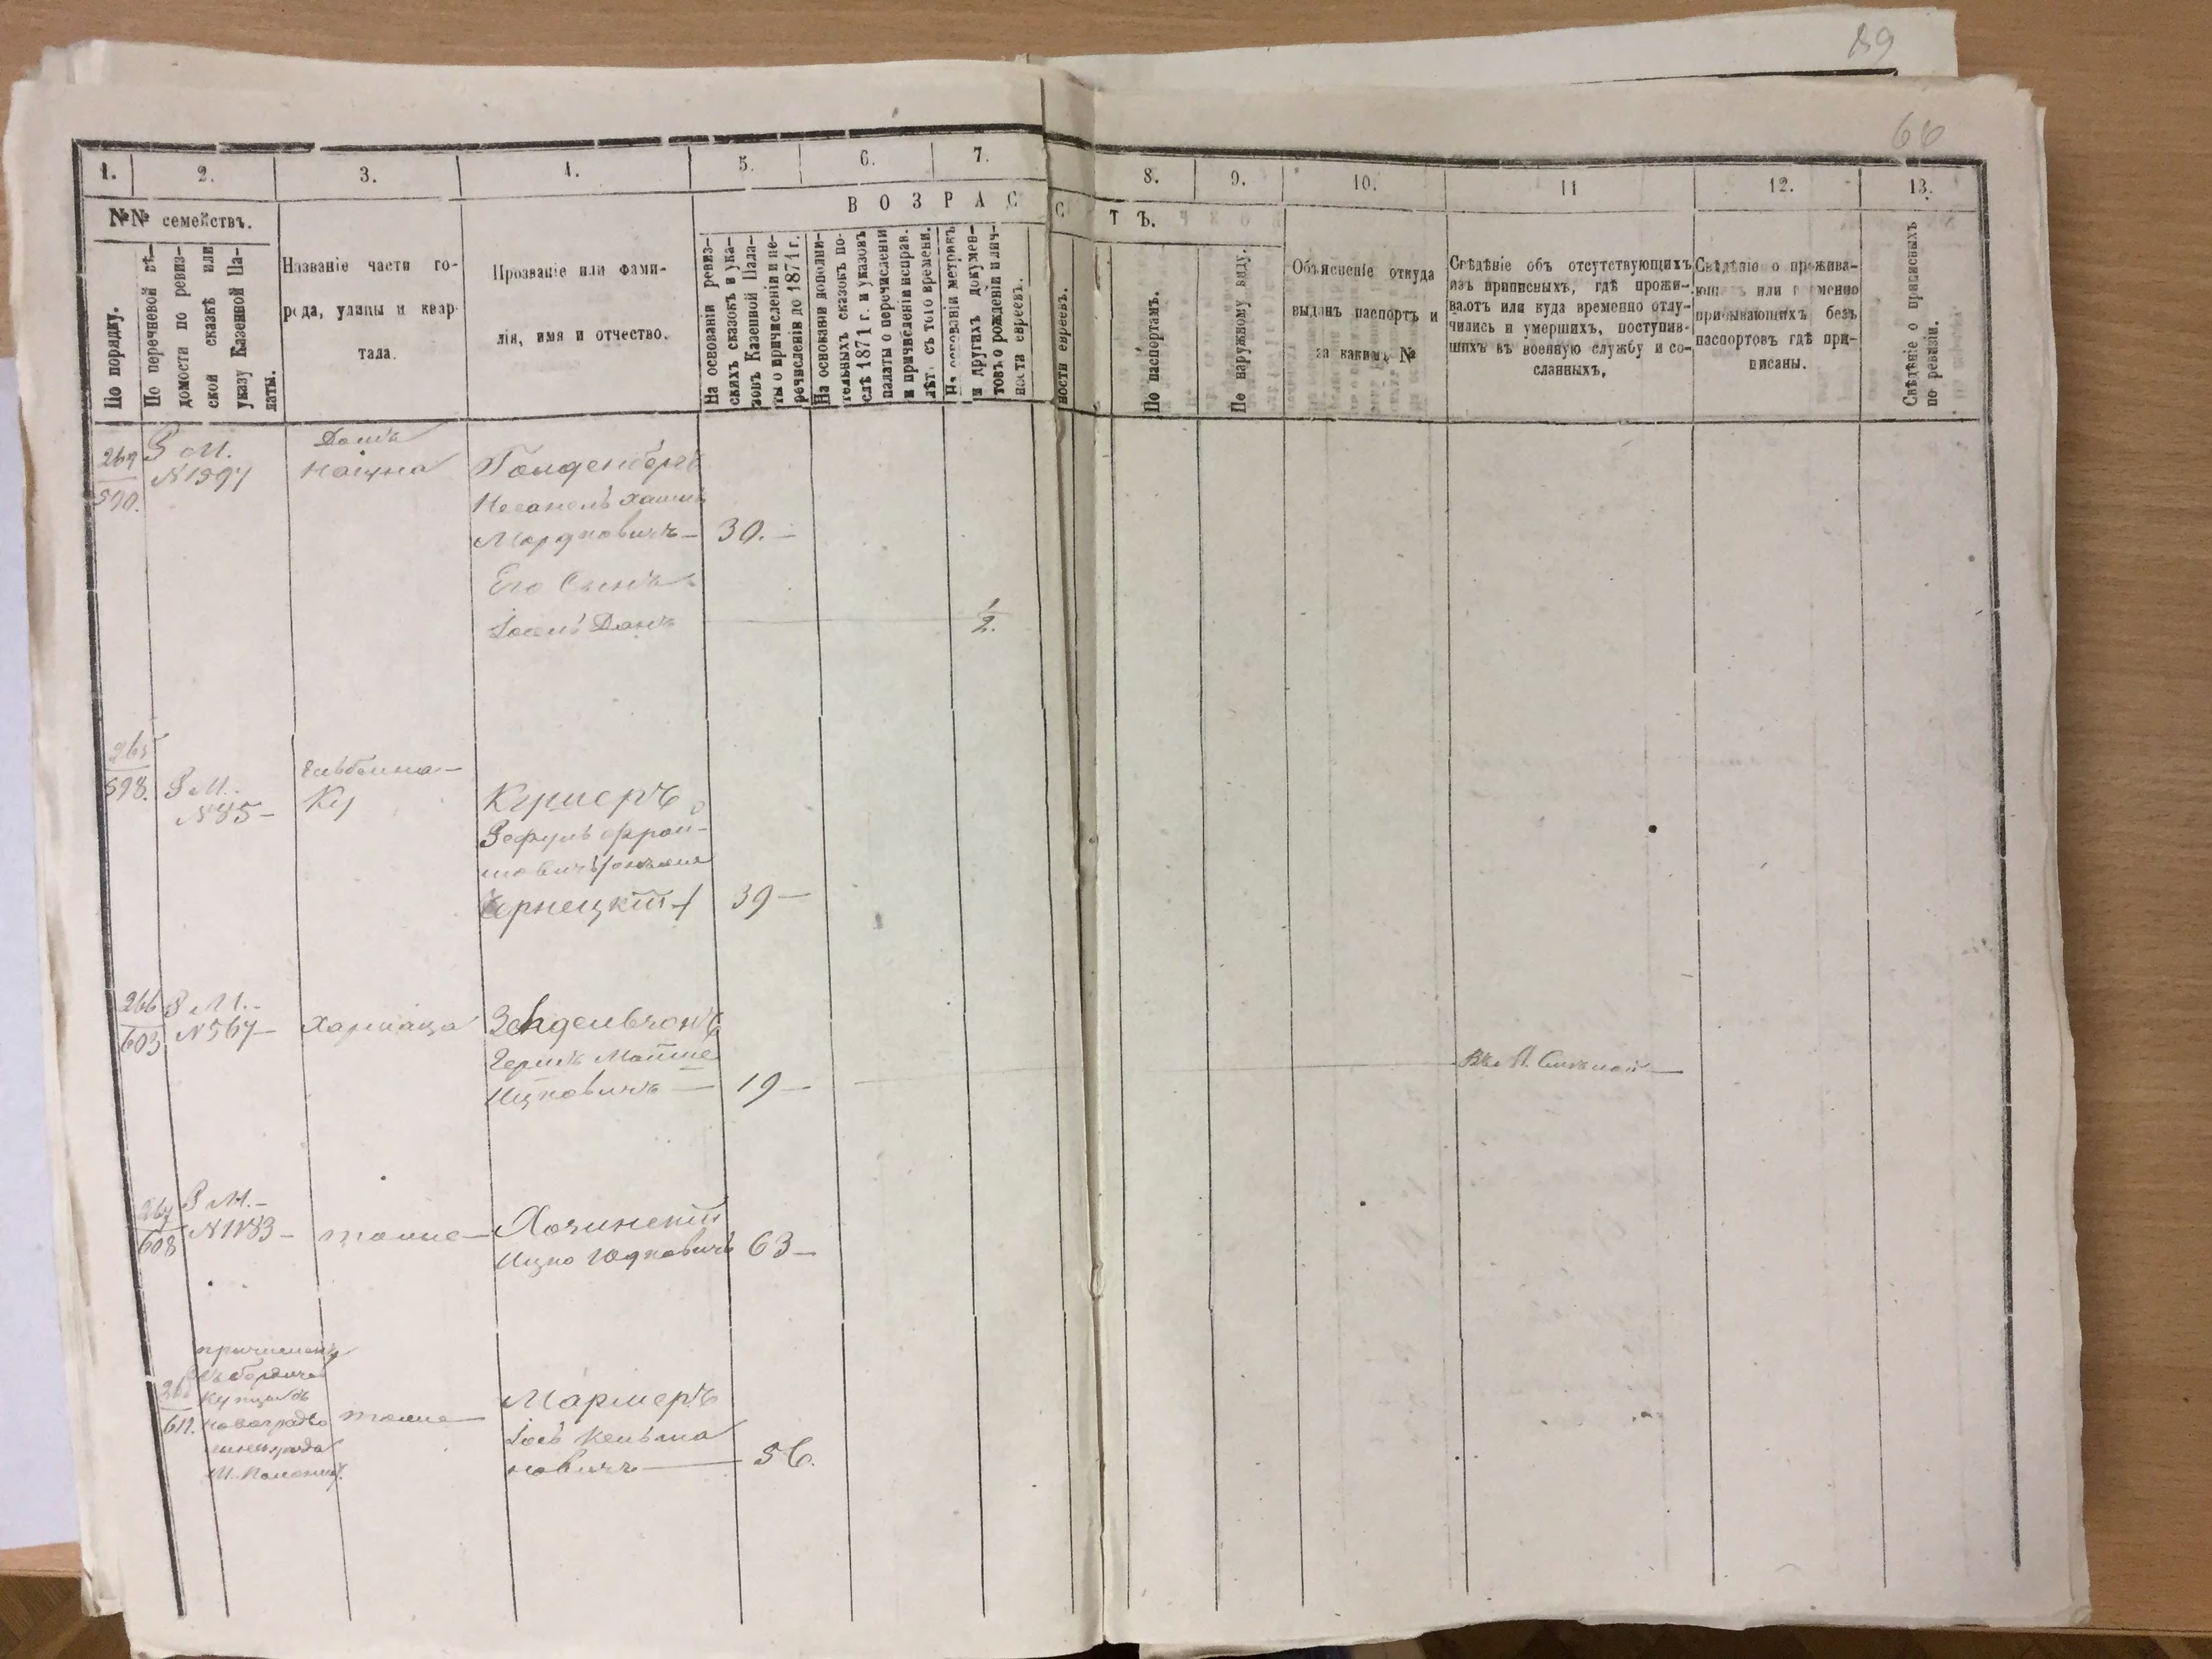 89
66
1.
2.
3.
4.
5.
6.
7.
8.
9.
10.
11
12.
13.
№№ семействъ.
По порядку.
По перечневой вѣ-
домости по ревиз-
ской сказкѣ или
указу Казенной Па-
латы.
Названіе части го-
рода, улицы и квар-
тала.
Прозваніе или фами-
лія, имя и отчество.
ВОЗРАС
С
ТЪ.
На основаніи ревиз-
скихъ сказокъ и ука-
зовъ Казенной Пала-
ты о причисленіи и пе-
речисленіи до 1871 г.
На основаніи дополни-
тельныхъ сказокъ по-
слѣ 1871 г. и указовъ
палаты о перечисленіи
и причисленіи исправ.
лѣт. съ того времени.
На основаніи метрикъ
и другихъ докумен-
товъ о рожденіи и лич-
ности евреевъ.
ности евреевъ.
По паспортамъ.
По наружному виду.
Объясненіе откуда
выданъ паспортъ и
за какимъ №
Свѣдѣніе объ отсутствующихъ
изъ приписныхъ, гдѣ прожи-
ваютъ или куда временно отлу-
чились и умершихъ, поступив-
шихъ въ военную службу и со-
сланныхъ.
Свѣдѣніе о прожива-
ющихъ или временно
прибывающихъ безъ
паспортовъ гдѣ при-
писаны.
Свѣдѣніе о приписныхъ
по ревизіи.
264
590.
Р М.
№1397
Домъ
Кацна
Гольденбергъ
Мордковичъ — 30. —
Его Сынъ
Іосель Данъ
1/2.
265
598.
Р М.
№85 —
Ку
Кушеръ
Чернецкій 39 —
266
603
Р М. —
№567 —
Харкаца
Зейденвчонъ
Гершъ Мошше
Ицковичъ — 19 —
267
608
Р М. —
№1183 —
тоже —
Хочинскій
Ицко Юдковичъ 63 —
611.
причисленъ
Купцовъ
Новоградъ
тоже —
Мармеръ
Іось Кельма
новичъ — 56.